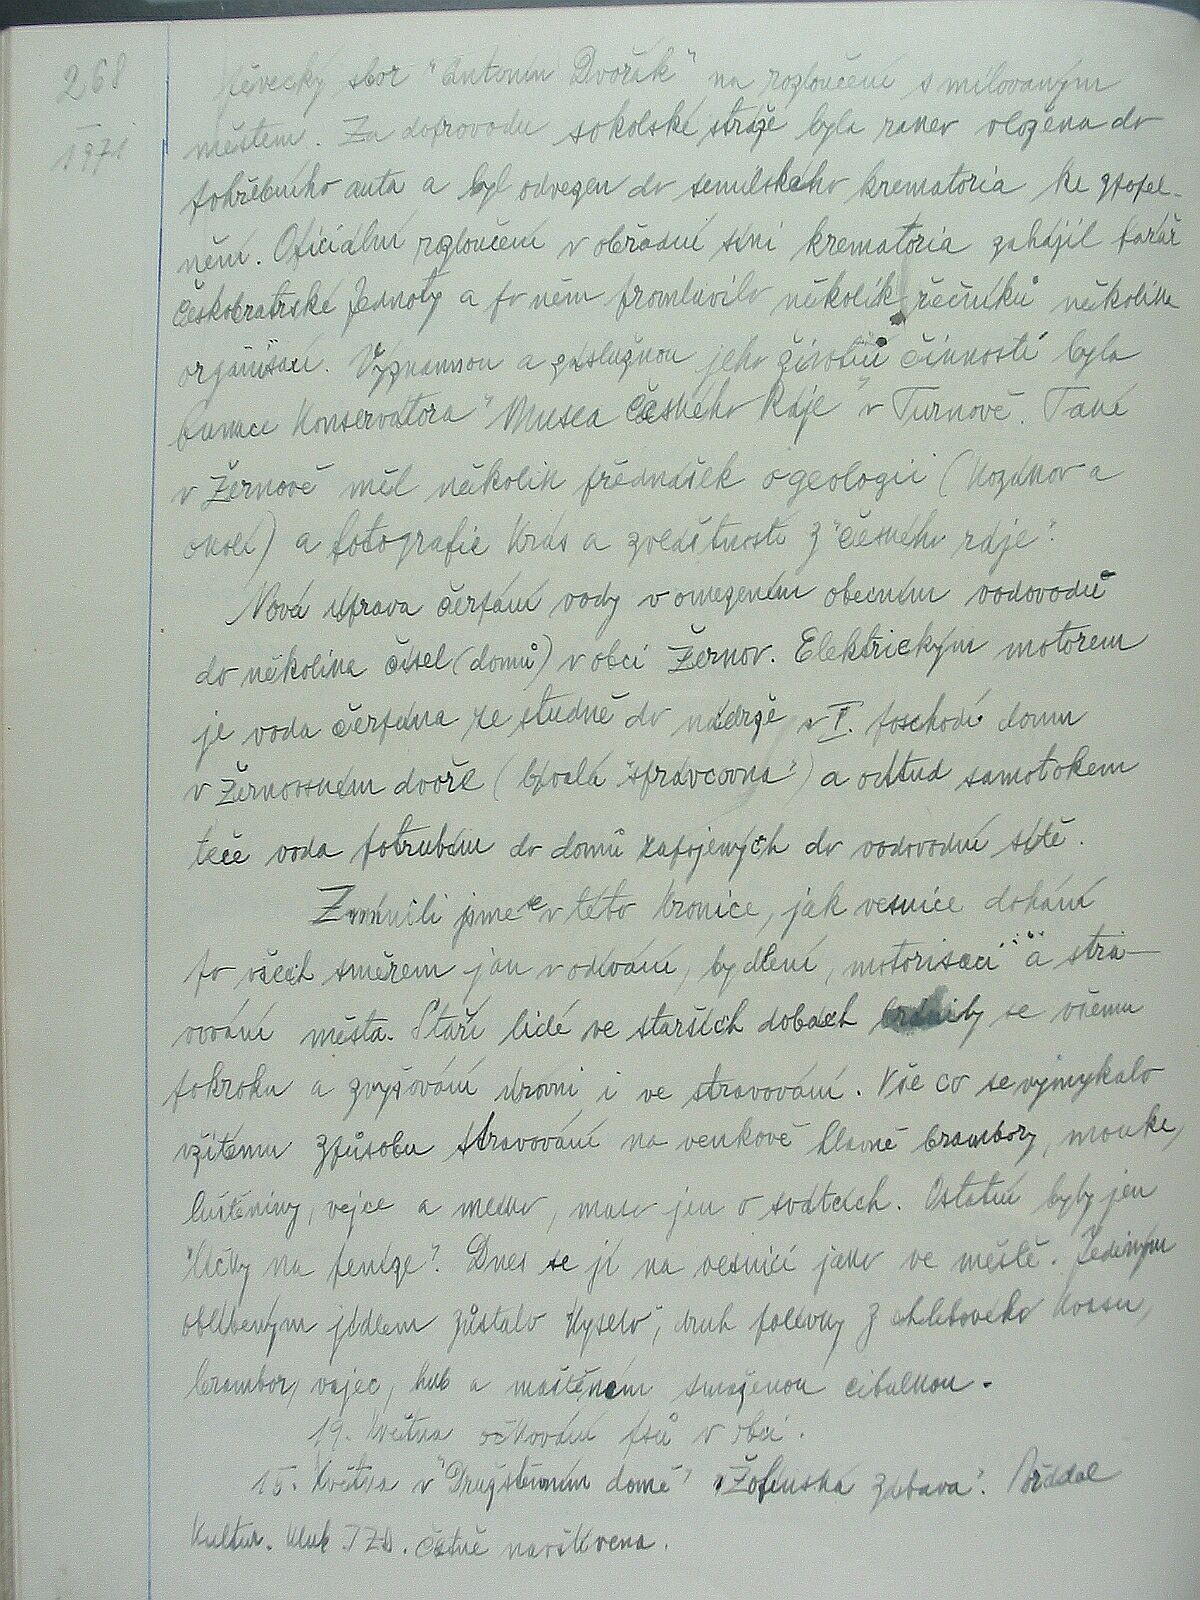 268
1971
Pěvecký sbor "Antonín Dvořák" na rozloučení s milovaným
městem. Za doprovodu sokolské stráže byla rakev vložena do
pohřebního auta a byl odvezen do semilského krematoria ke zpopel-
nění. Oficiální rozloučení v obřadní síni krematoria zahájil farář
Českobratrské Jednoty a po něm promluvilo několik řečníků několika
organisací. Významnou a záslužnou jeho životní činností byla
funkce Konservátora "Musea Českého Ráje" v Turnově. Také
v Žernově měl několik přednášek o geologii (Kozákov a
okolí) a fotografie krás a zvláštností z "českého ráje".
Nová úprava čerpání vody v omezeném obecním vodovodě
do několika čísel (domů) v obci Žernov. Elektrickým motorem
je voda čerpána ze studně do nádrže v I. poschodí domu
v Žernovském dvoře (bývalá "správcovna") a odtud samotokem
teče voda potrubím do domů zapojených do vodovodní sítě.
Zmínili jsme se v této kronice, jak vesnice dohání
po všech směrem jak v odívání, bydlení, motorisaci a stra-
vování města. Staří lidé ve starších dobách bránily se všemu
pokroku a zvyšování úrovni i ve stravování. Vše co se vymykalo
vžitému způsobu stravování na venkově hlavně brambory, mouka,
luštěniny, vejce a mléko, maso jen o svátcích. Ostatní byly jen
"kčky na peníze". Dnes se jí na vesnici jako ve městě. Jediným
oblíbeným jídlem zůstalo kyselo, druh polévky z chlebového kvasu,
brambor, vajec, hub a maštěném smaženou cibulkou.
19. května očkování psů v obci.
15. května v "Družstevním domě" "Žofínská zábava". Pořádal
Kultur. klub JZD. četně navštívena.